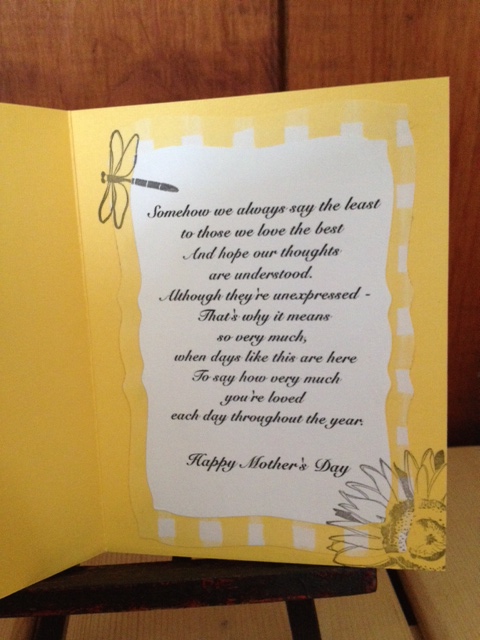 Somehow we always say the least
to those we love the best
And hope our thoughts
are understood.
Although they're unexpressed -
That's why it means
so very much,
when days like this are here
To say how very much
you're loved
each day throughout the year.
Happy Mother's Day